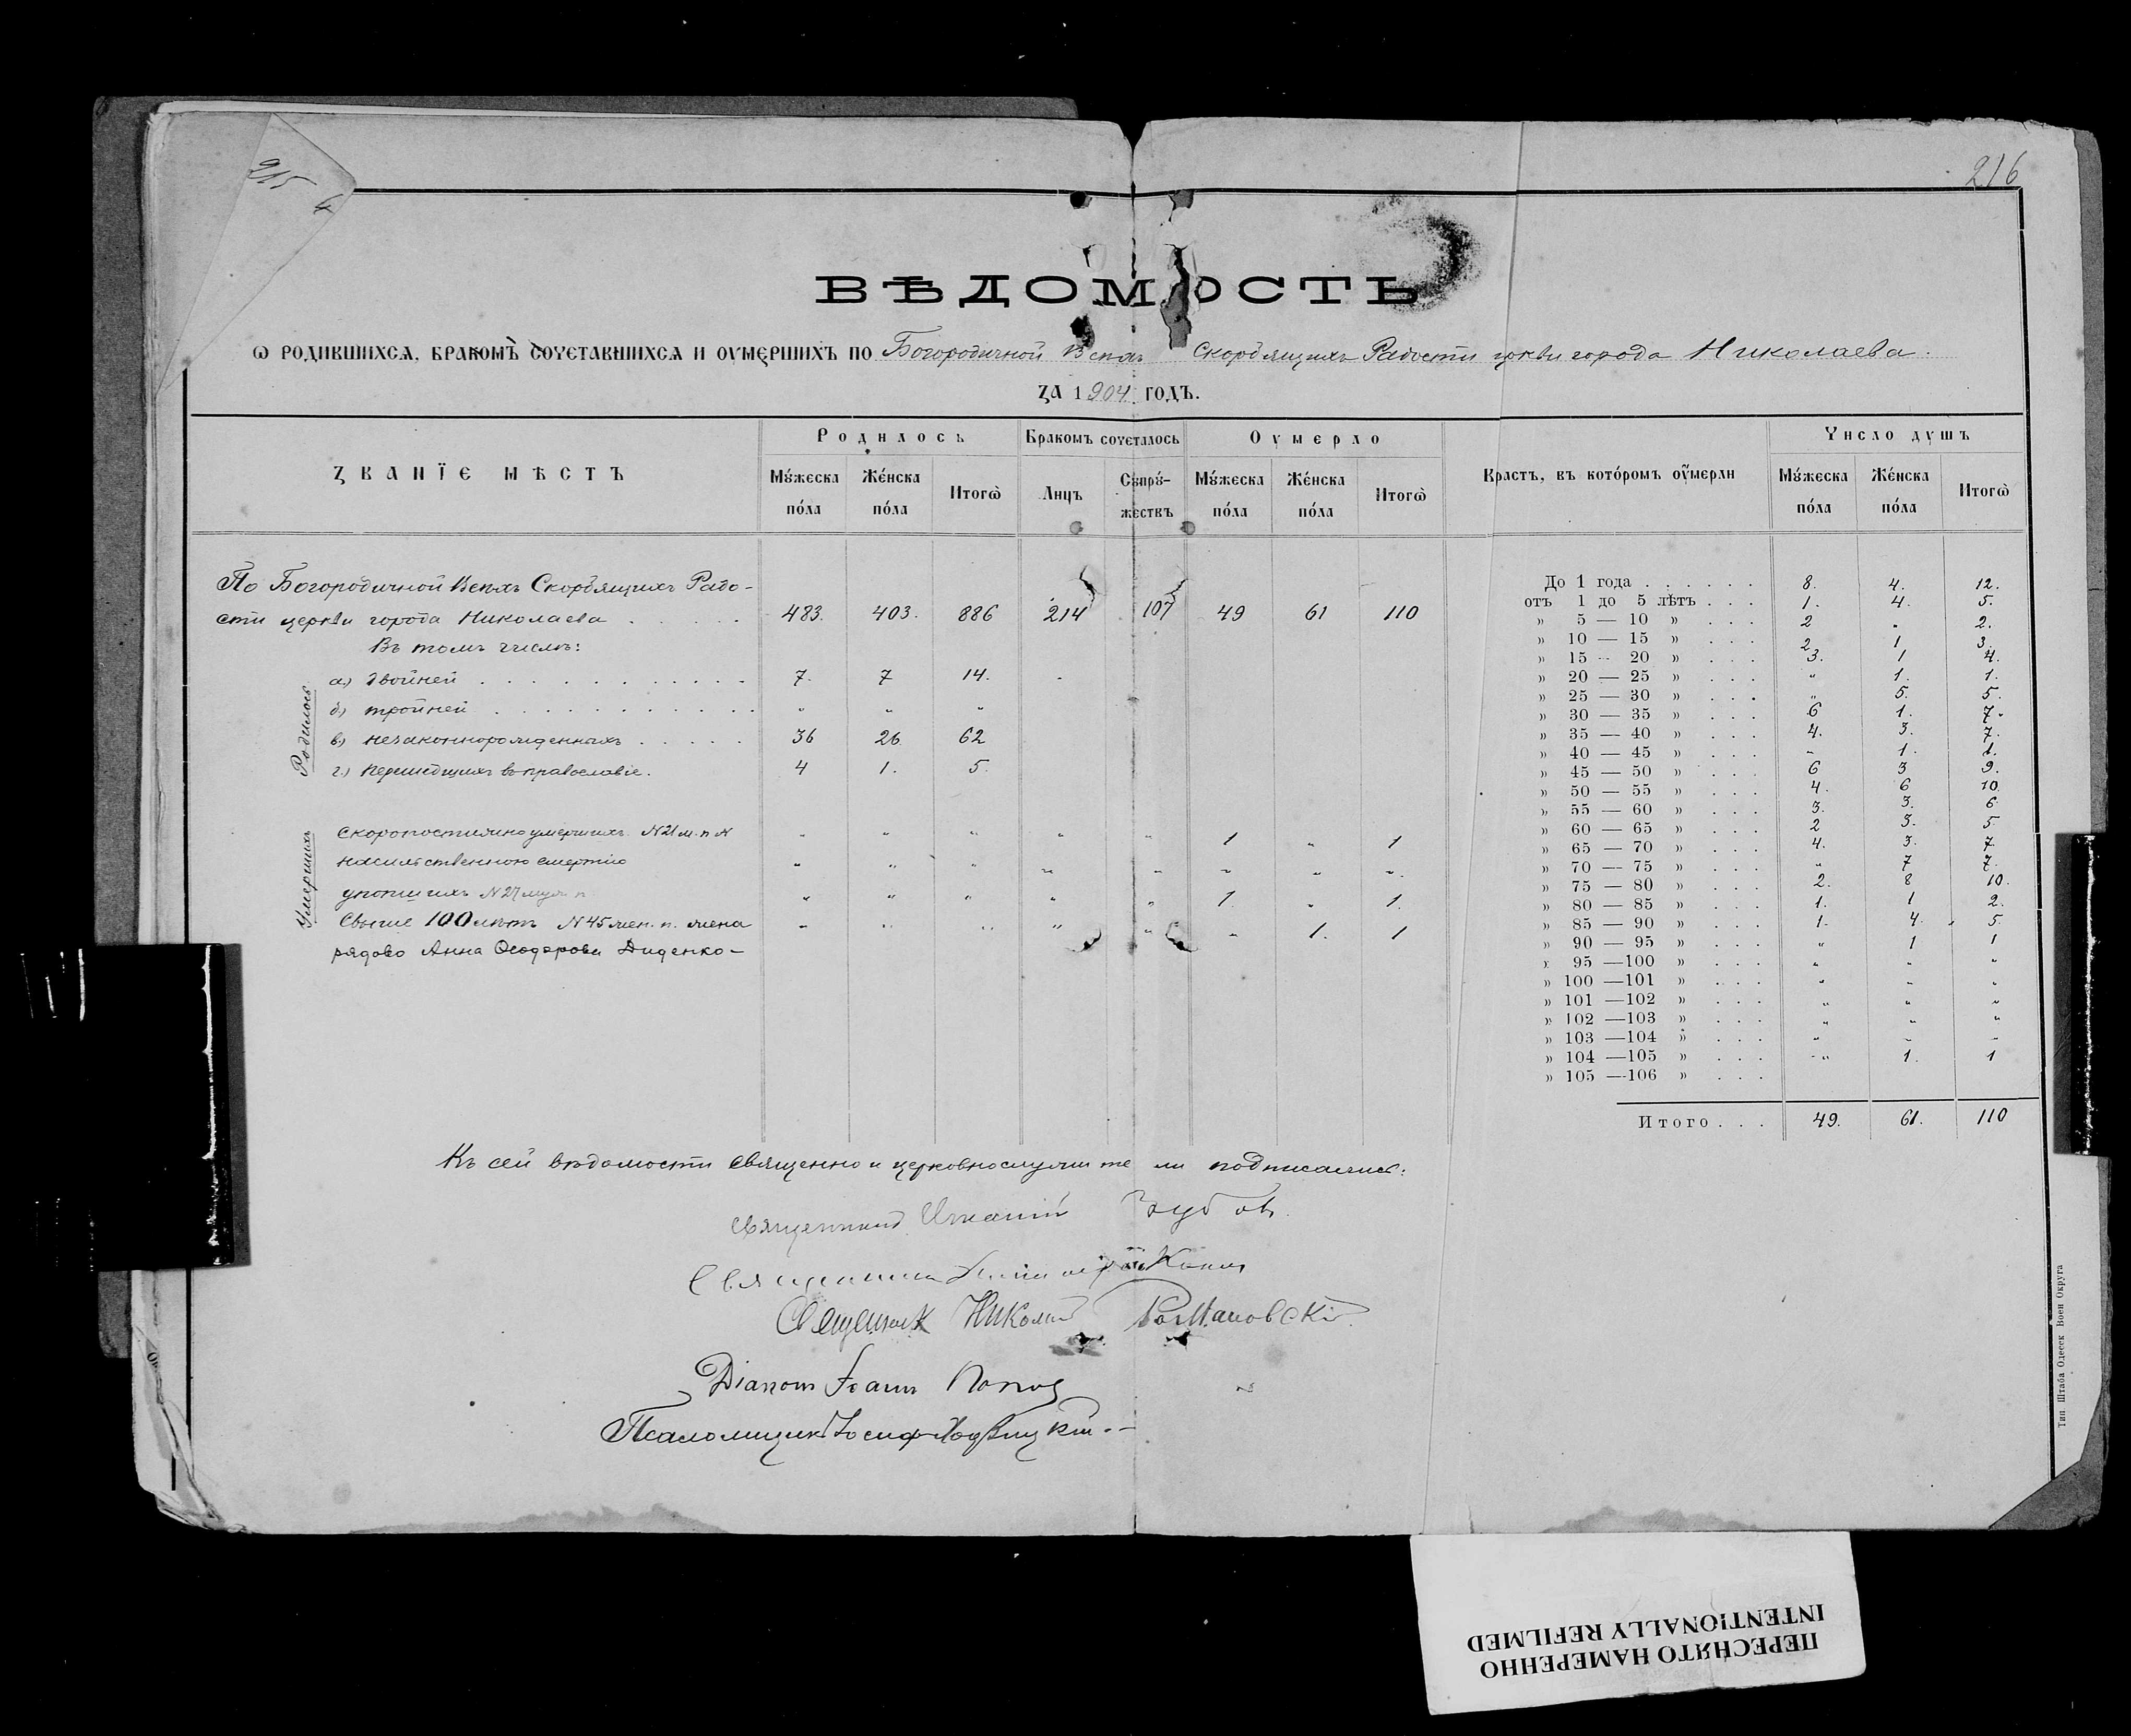 215
216
ВѢДОМОСТЬ
Ѡ РОДИВШИХСѦ, БРАКОМЪ СОЧЕТАВШИХСѦ И ОУМЕРШИХЪ ПО Богородичной Всѣхъ Скорбящихъ Радости цркви города Николаева.
ЗА 1904 ГОДЪ.
ЗВАНЇЕ МѢСТЪ
Родилось
Бракомъ сочеталось
Оумерло
Мꙋ́жеска пóла
Жéнска пóла
Итогѡ̀
Лицъ
Сꙋпрꙋ́-жествъ
Мꙋ́жеска пóла
Жéнска пóла
Итогѡ̀
Врастъ, въ котóромъ оу҆́мерли
Число душъ
Мꙋ́жеска пóла
Жéнска пóла
Итогѡ̀
По Богородичной Всѣхъ Скорбящихъ Радо-
сти церкви города Николаева . . . . . 483. 403. 886 214 107 49 61 110
Въ томъ числѣ:
Родилось
а.) двойней . . . . . . . . . . . 7. 7 14.
б) тройней . . . . . . . . . . . " " "
в) незаконнорожденныхъ . . . . . 36 26 62
г.) перешедшихъ въ православіе. 4 1. 5.
Умершихъ
скоропостижно умершихъ N 21 м. п. " " " " " 1 " 1
насильственною смертію " " " " " " " "
утопшихъ N 27 муж. п " " " " " 1. " 1.
Свыше 100 лѣтъ N 45 жен. п. жена " " " " " " 1. 1
рядово Анна Ѳеодорова Диденко-
До 1 года . . . . . . 8. 4. 12.
отъ 1 до 5 лѣтъ . . . 1. 4. 5.
» 5 — 10 » . . . 2 " 2.
» 10 — 15 » . . . 2 1 3.
» 15 — 20 » . . . 3. 1 4.
» 20 — 25 » . . . " 1. 1.
» 25 — 30 » . . . " 5. 5.
» 30 — 35 » . . . 6 1. 7.
» 35 — 40 » . . . 4. 3. 7.
» 40 — 45 » . . . " 1. 1.
» 45 — 50 » . . . 6 3 9.
» 50 — 55 » . . . 4. 6 10.
» 55 — 60 » . . . 3. 3. 6
» 60 — 65 » . . . 2 3. 5
» 65 — 70 » . . . 4. 3. 7.
» 70 — 75 » . . . " 7 7.
» 75 — 80 » . . . 2. 8 10.
» 80 — 85 » . . . 1. 1 2.
» 85 — 90 » . . . 1. 4. 5.
» 90 — 95 » . . . " 1 1
» 95 —100 » . . . " " "
» 100 —101 » . . . " " "
» 101 —102 » . . . " " "
» 102 —103 » . . . " " "
» 103 —104 » . . . " " "
» 104 —105 » . . . " 1. 1
» 105 —106 » . . .
Итого . . . 49. 61. 110
Къ сей вѣдомости священно и церковнослужители подписались:
Священникъ Зубовъ.
Священникъ
Священникъ Николай Романовскій
Діаконъ Іоаннъ Попов
Псаломщикъ Іосифъ
Тип. Штаба Одесск Воен Округа
ПЕРЕСНЯТО НАМЕРЕННО
INTENTIONALLY REFILMED